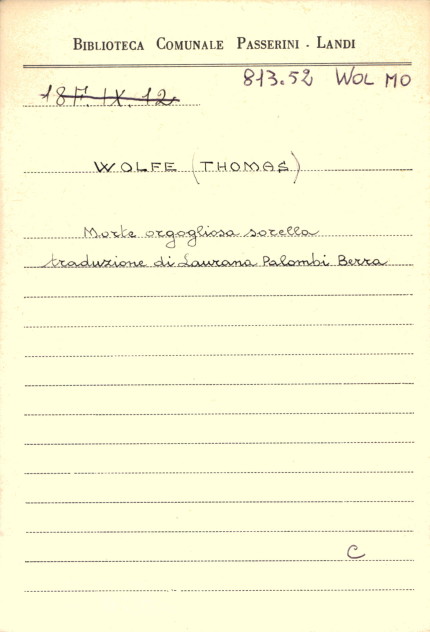 BIBLIOTECA COMUNALE PASSERINI - LANDI
813.52 WOL MO
18F.IX.12
WOLFE (THOMAS)
Morte orgogliosa sorella
traduzione di Laurana Palombi Berra
C